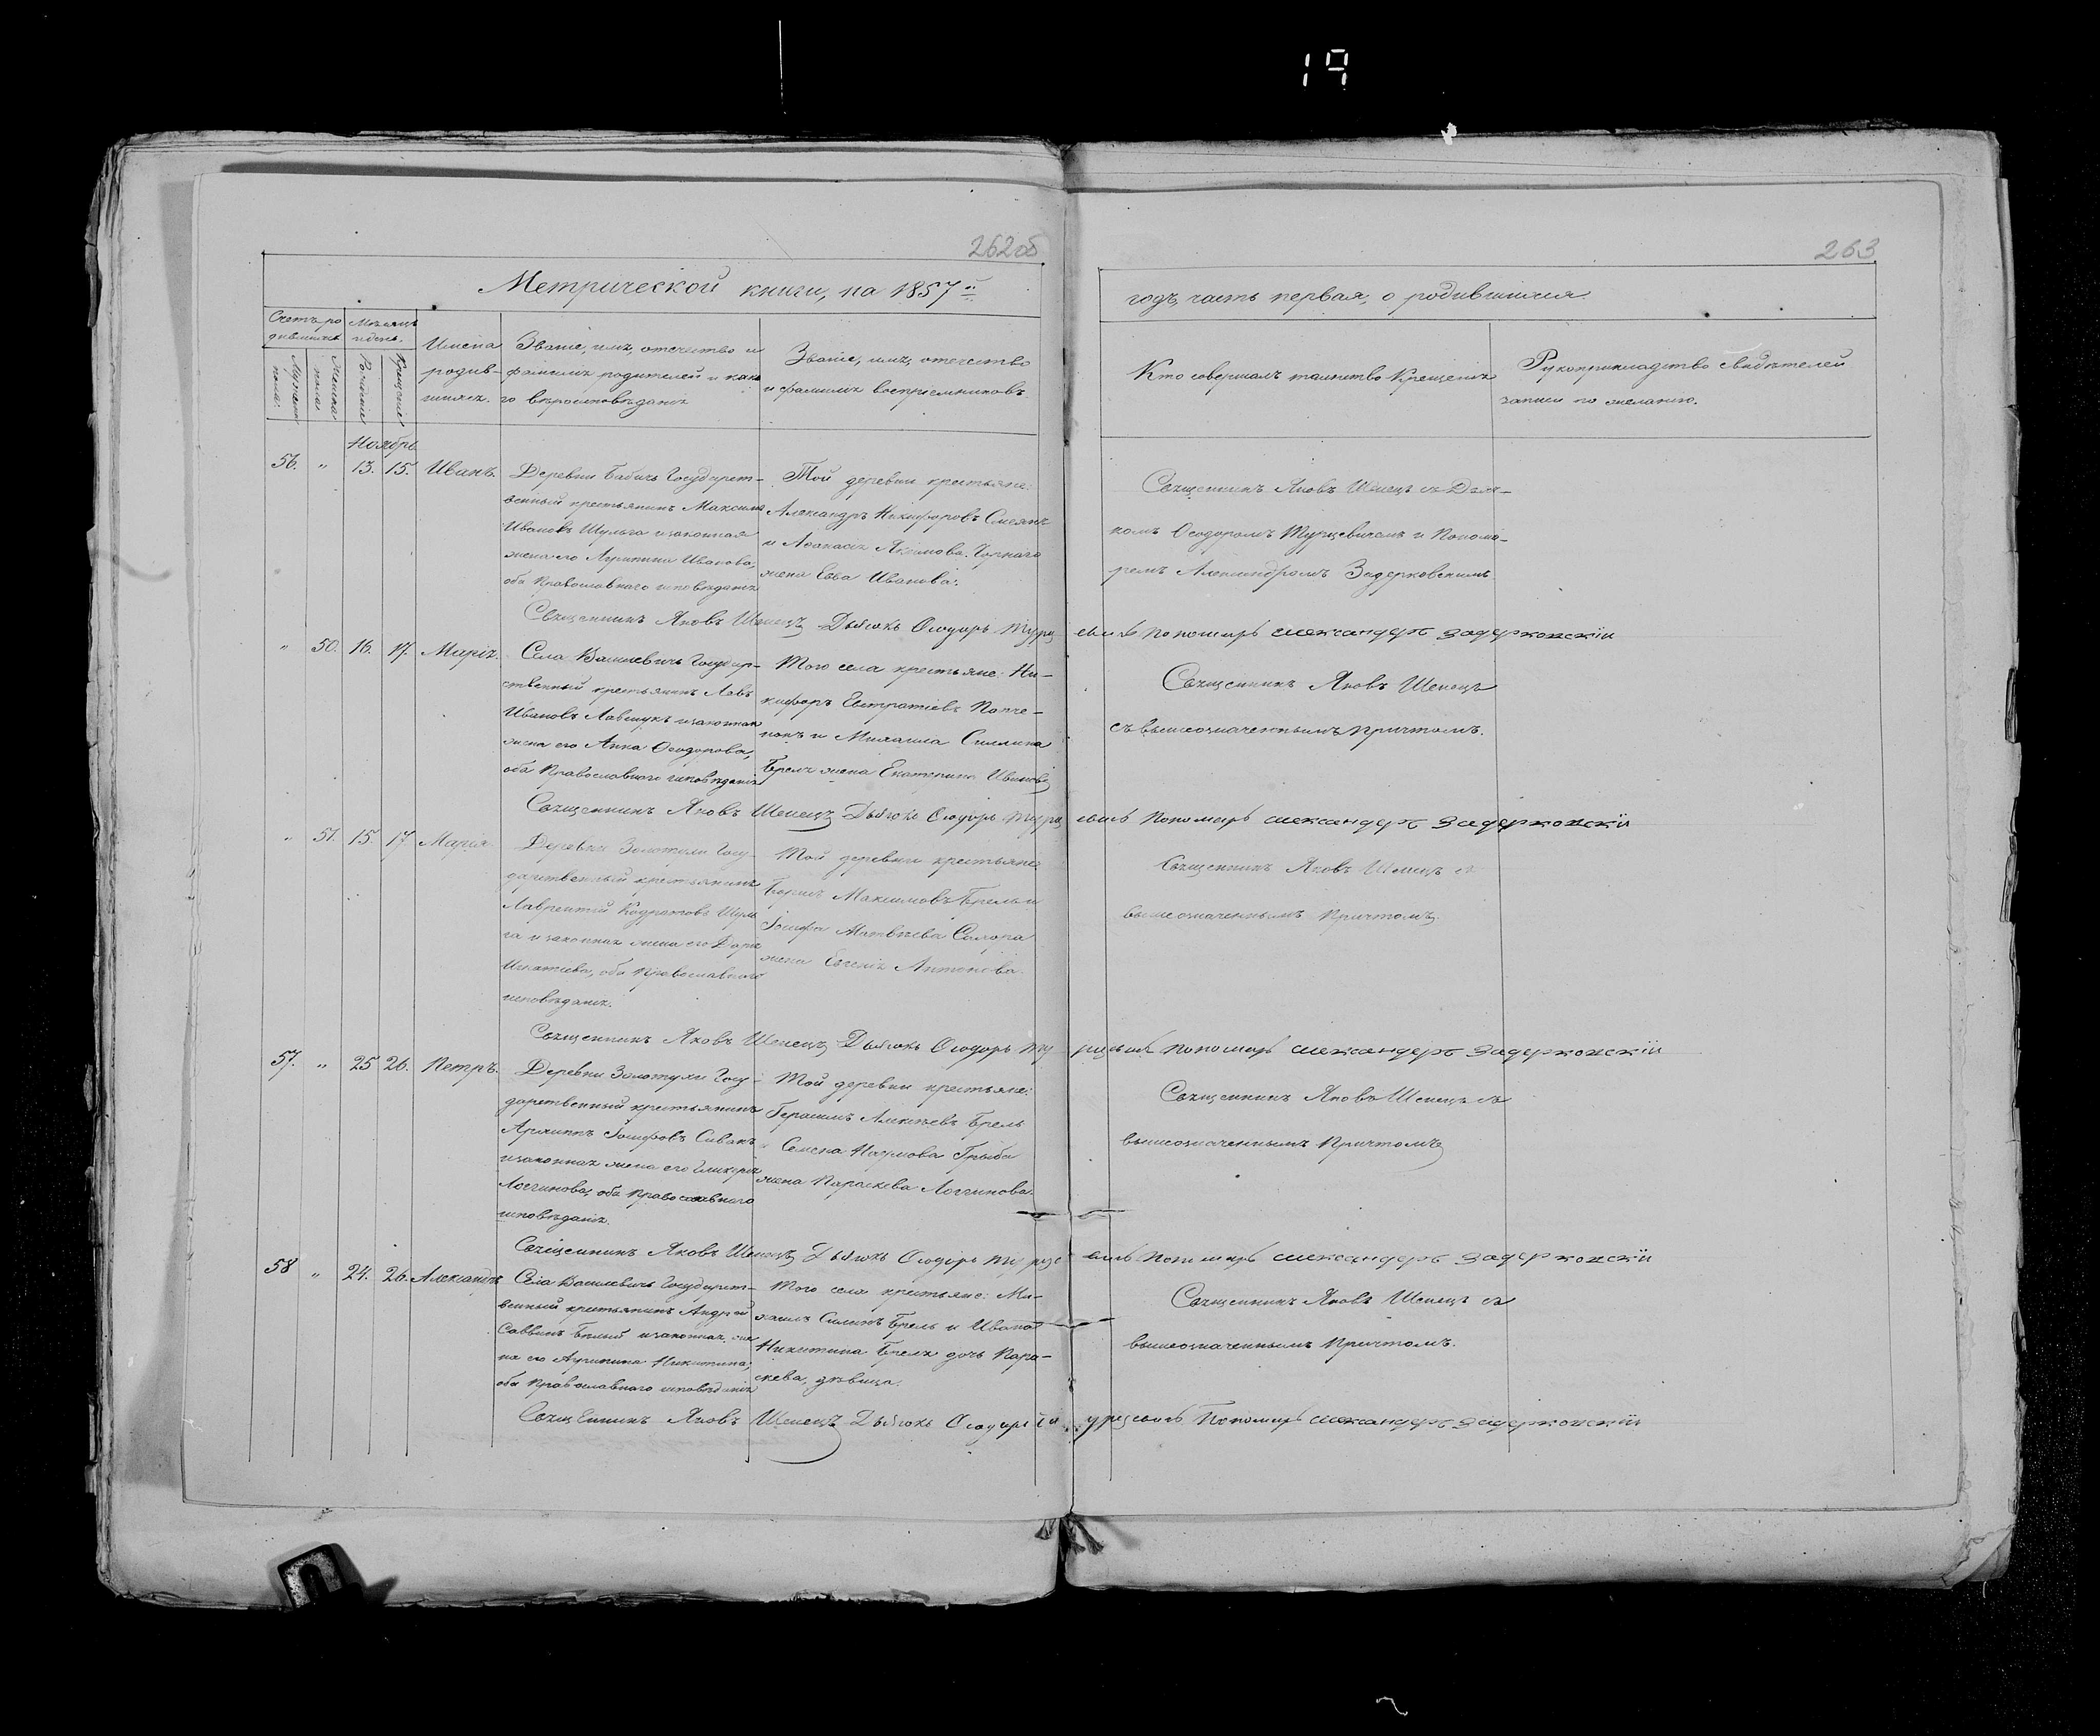 19
262об
263
Метрической книги, на 1857й
годъ, часть первая, о родившихся.
Счетъ ро
дившихся
Мѣсяцъ
и день.
Имена
родив-
шихся.
Званіе, имя, отечество и
фамилія родителей и како
го вѣроисповѣданія
Званіе, имя, отечество
и фамилія воспріемниковъ
Кто совершалъ таинство Крещенія
Рукоприкладство свидѣтелей
записи по желанію.
Мужеска
пола.
Женска
пола
Рожденіе
Крещеніе
Ноябрь
56. " 13. 15. Иванъ.
Деревни Бабичъ Государст-
венный крестьянинъ Максимъ
Ивановъ Шульга и законная
жена его Агрипина Иванова,
оба Православнаго исповѣданія
Той деревни крестьяне:
Александръ Никифоровъ
и Аѳанасія Якимова
жена Евва Иванова.
Священникъ Яковъ Шенецъ съ Дьяч-
комъ Ѳеодоромъ Турцевичемъ и Понома-
ремъ Александромъ Задерковскимъ
Священникъ Яковъ Шенецъ Дьячокъ Ѳеодоръ Турцевичъ Пономарь Александеръ Задерковскій
" 50. 16. 17. Марія.
Села Василевичъ Государ-
ственный крестьянинъ Левъ
Ивановъ Лавецукъ и законная
жена его Анна Ѳеодорова,
оба Православнаго исповѣданія
Того села крестьяне: Ни-
кифоръ Евстратіевъ
и Михаила Силина
Бреля жена Екатерина Иванова
Священникъ Яковъ Шенецъ
съ вышеозначеннымъ причтомъ.
Священникъ Яковъ Шенецъ Дьячокъ Ѳеодоръ Турцевичъ Пономарь Александеръ Задерковскій
" 51. 15. 17 Марія
Деревни Золотухи Госу-
дарственный крестьянинъ
Лаврентій Кодратовъ Шуль
га и законная жена его Дарія
Игнатіева, оба Православнаго
исповѣданія.
Той деревни крестьяне:
Борисъ Максимовъ Брель и
Іосифа Матвѣева
жена Евгенія Антонова.
Священникъ Яковъ Шенецъ съ
вышеозначеннымъ Причтомъ.
Священникъ Яковъ Шенецъ Дьячокъ Ѳеодоръ Турцевичъ Пономарь Александеръ Задерковскій
57. " 25 26. Петръ.
Деревни Золотухи Госу-
дарственный крестьянинъ
Архипъ Іосифовъ Сивакъ
и законная жена его Гликерія
Логгинова, оба Православнаго
исповѣданія.
Той деревни крестьяне:
Герасимъ Алексѣевъ Брель
и Семена Наумова Грыба
жена Параскева Логгинова.
Священникъ Яковъ Шенецъ съ
вышеозначеннымъ Причтомъ
Священникъ Яковъ Шенецъ Дьячокъ Ѳеодоръ Турцевичъ Пономарь Александеръ Задерковскій
58 " 24. 26. Александръ
Села Василевичъ Государст-
венный крестьянинъ Андрей
Саввинъ Бѣлый и законная же
на его Агрипина Никитина,
оба Православнаго исповѣданія
Того села крестьяне: Ми-
хаилъ Силинъ Брель и Ивана
Никитина Бреля дочь Пара-
скева, дѣвица.
Священникъ Яковъ Шенецъ съ
вышеозначеннымъ Причтомъ.
Священникъ Яковъ Шенецъ Дьячокъ Ѳеодоръ Турцевичъ Пономарь Александеръ Задерковскій